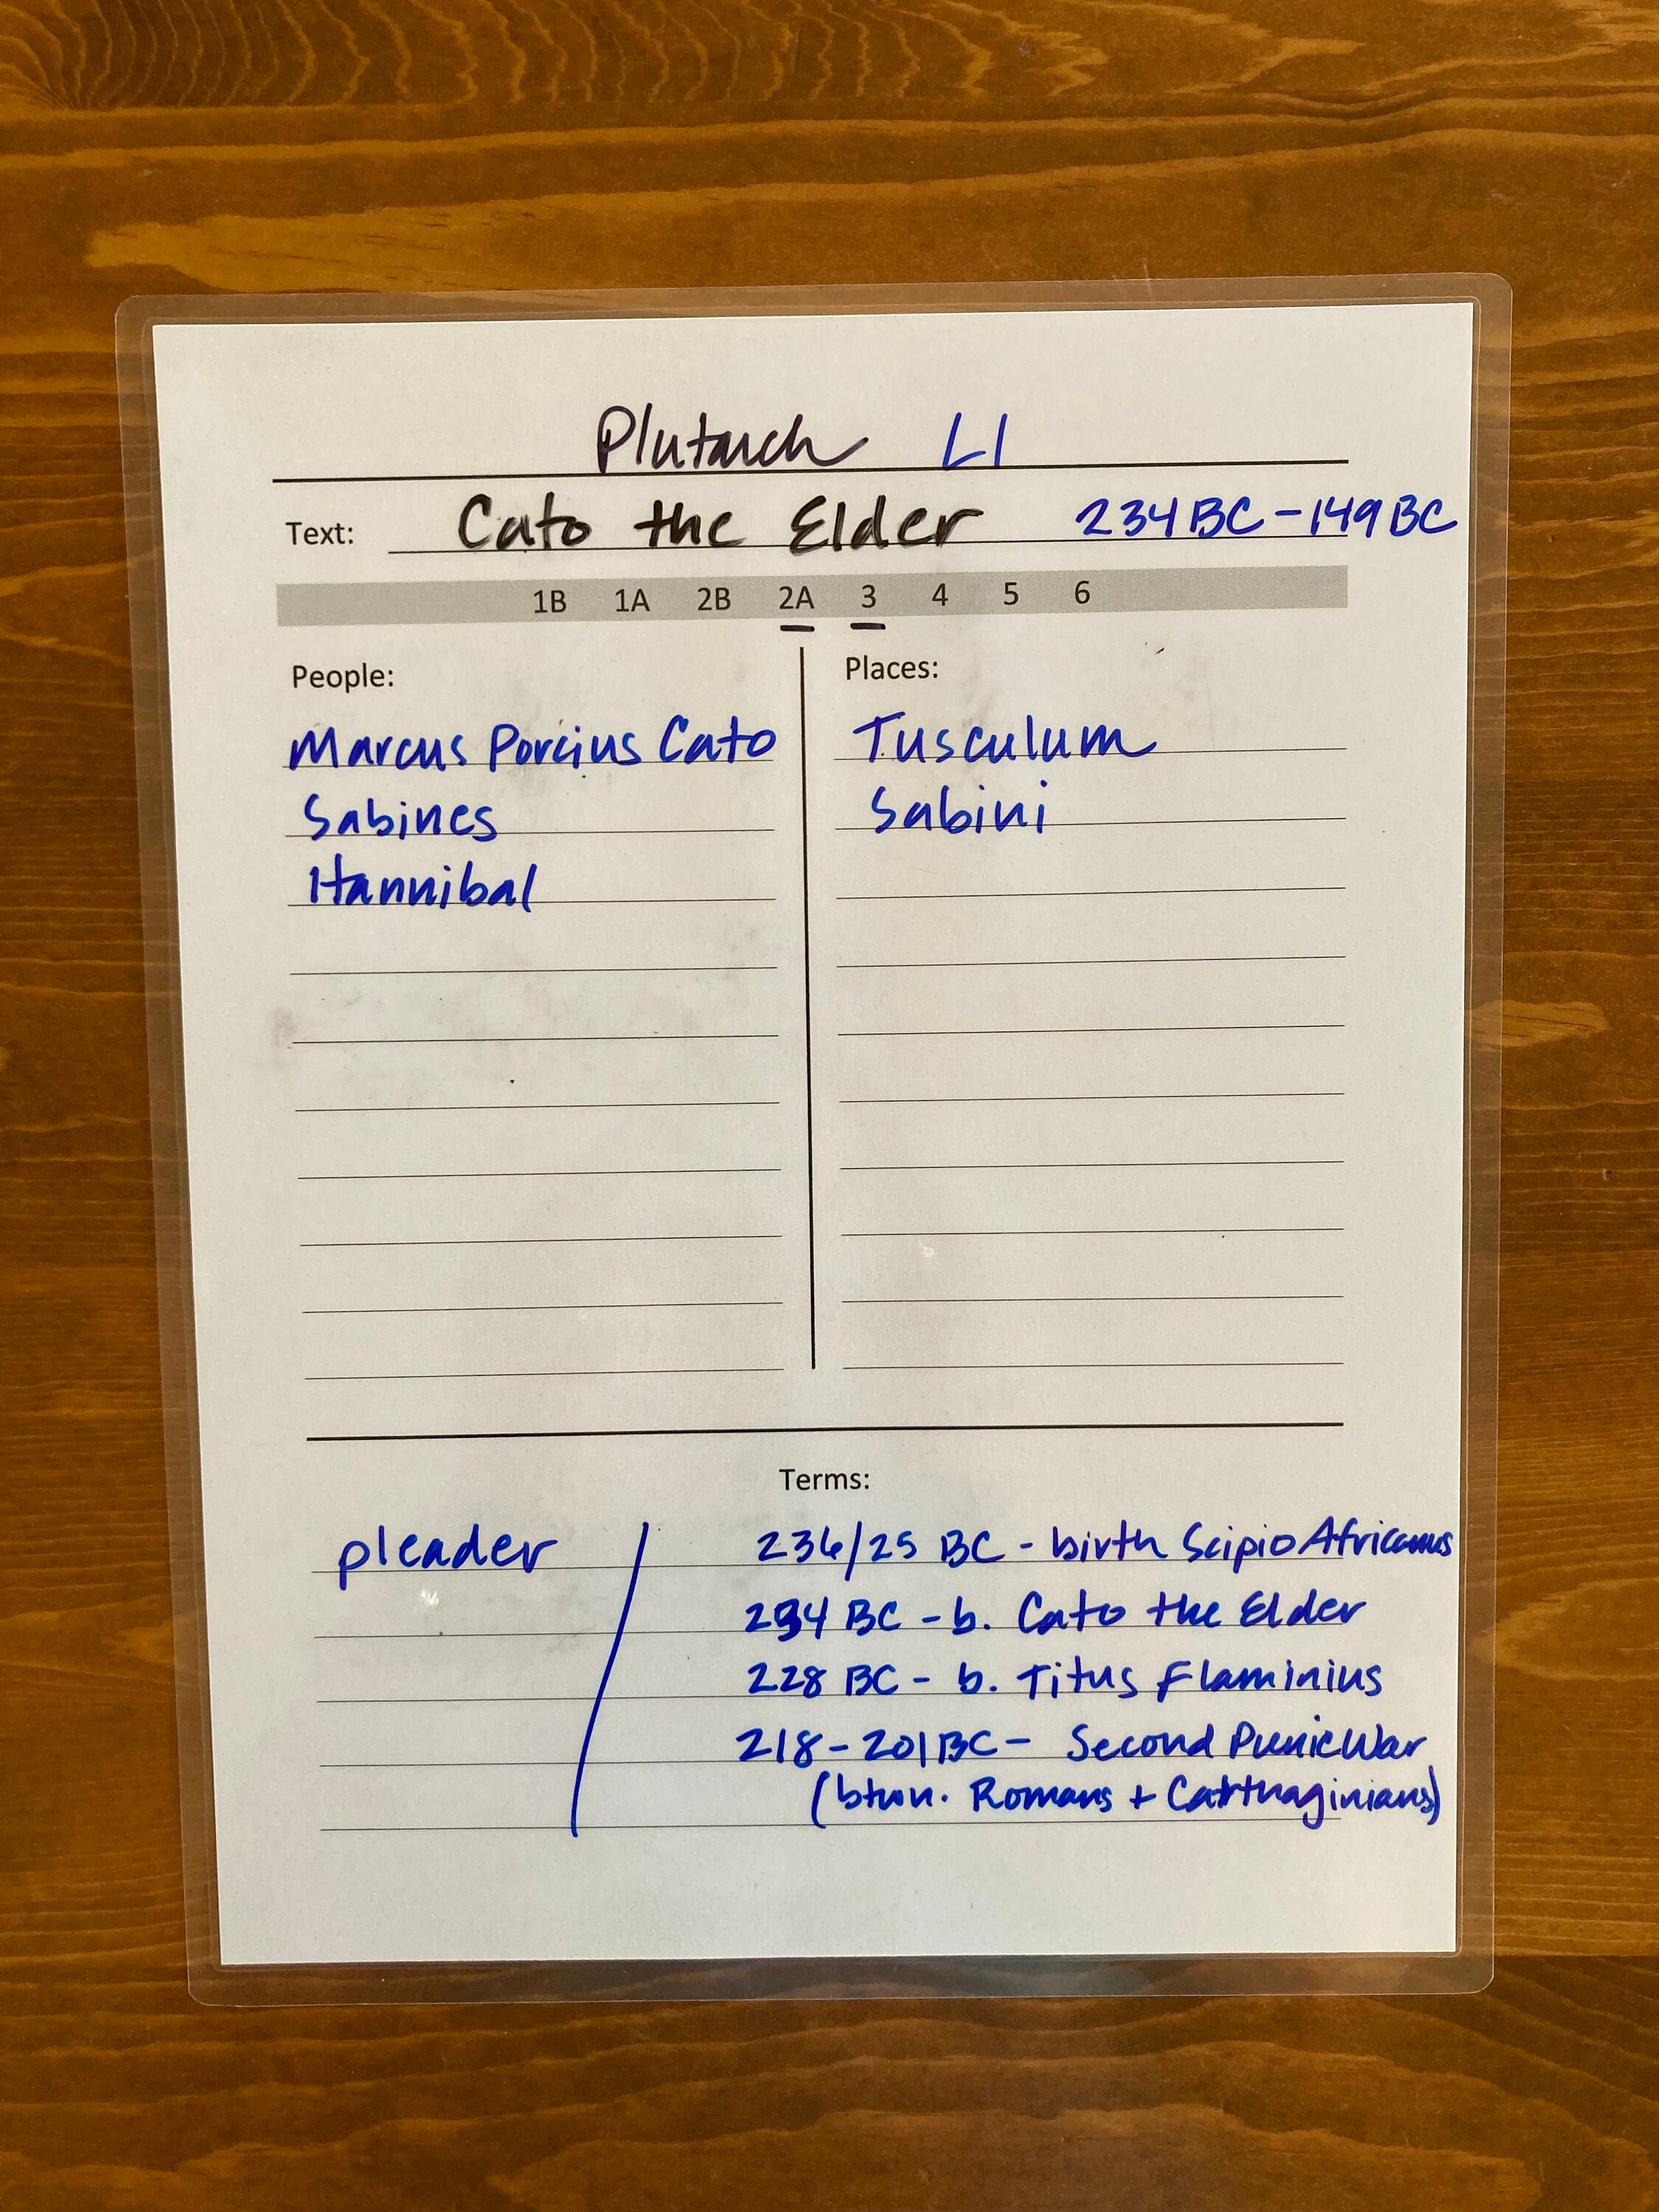 Plutarch L1
Text: Cato the Elder 234 BC - 149 BC
1B 1A 2B 2A 3 4 5 6
People:
Marcus Porcius Cato
Sabines
Hannibal
Places:
Tusculum
Sabini
Terms:
pleader
236/25 BC - birth Scipio Africanus
234 BC - b. Cato the Elder
228 BC - b. Titus Flaminius
218 - 201 BC - Second Punic War
(btwn. Romans + Carthaginians)